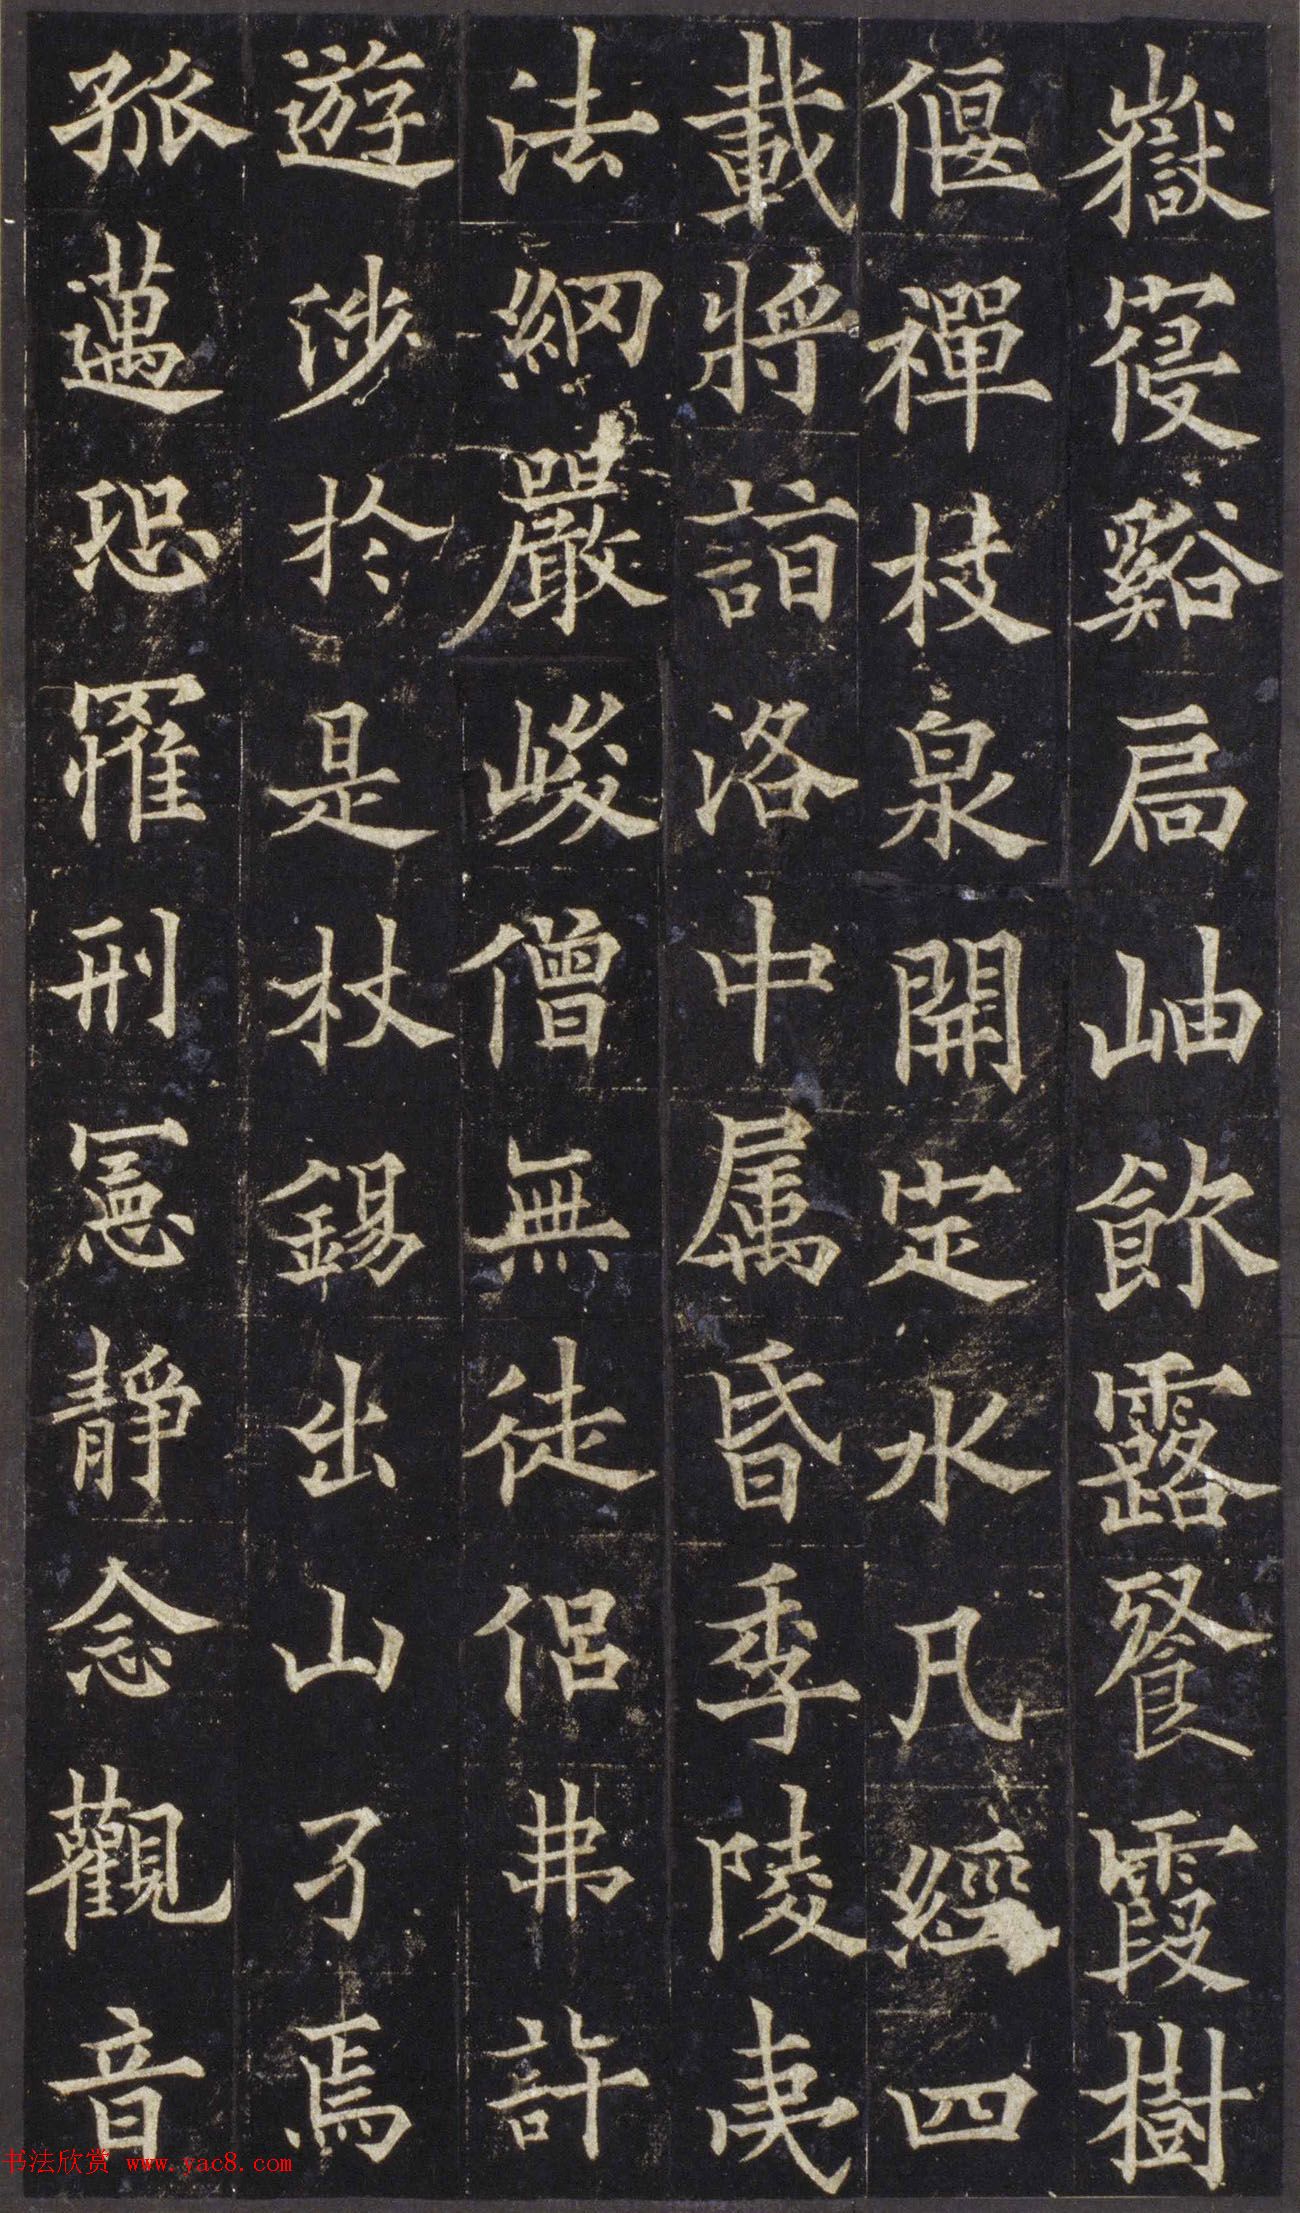 嶽寑谿扃岫飲露餐霞樹
偃禪枝泉開定水凡經四
載將詣洛中属昏季陵夷
法網嚴峻僧無徒侶弗許
遊涉於是杖錫出山孑焉
孤邁恐罹刑憲靜念觀音
书法欣赏 www.yac8.com